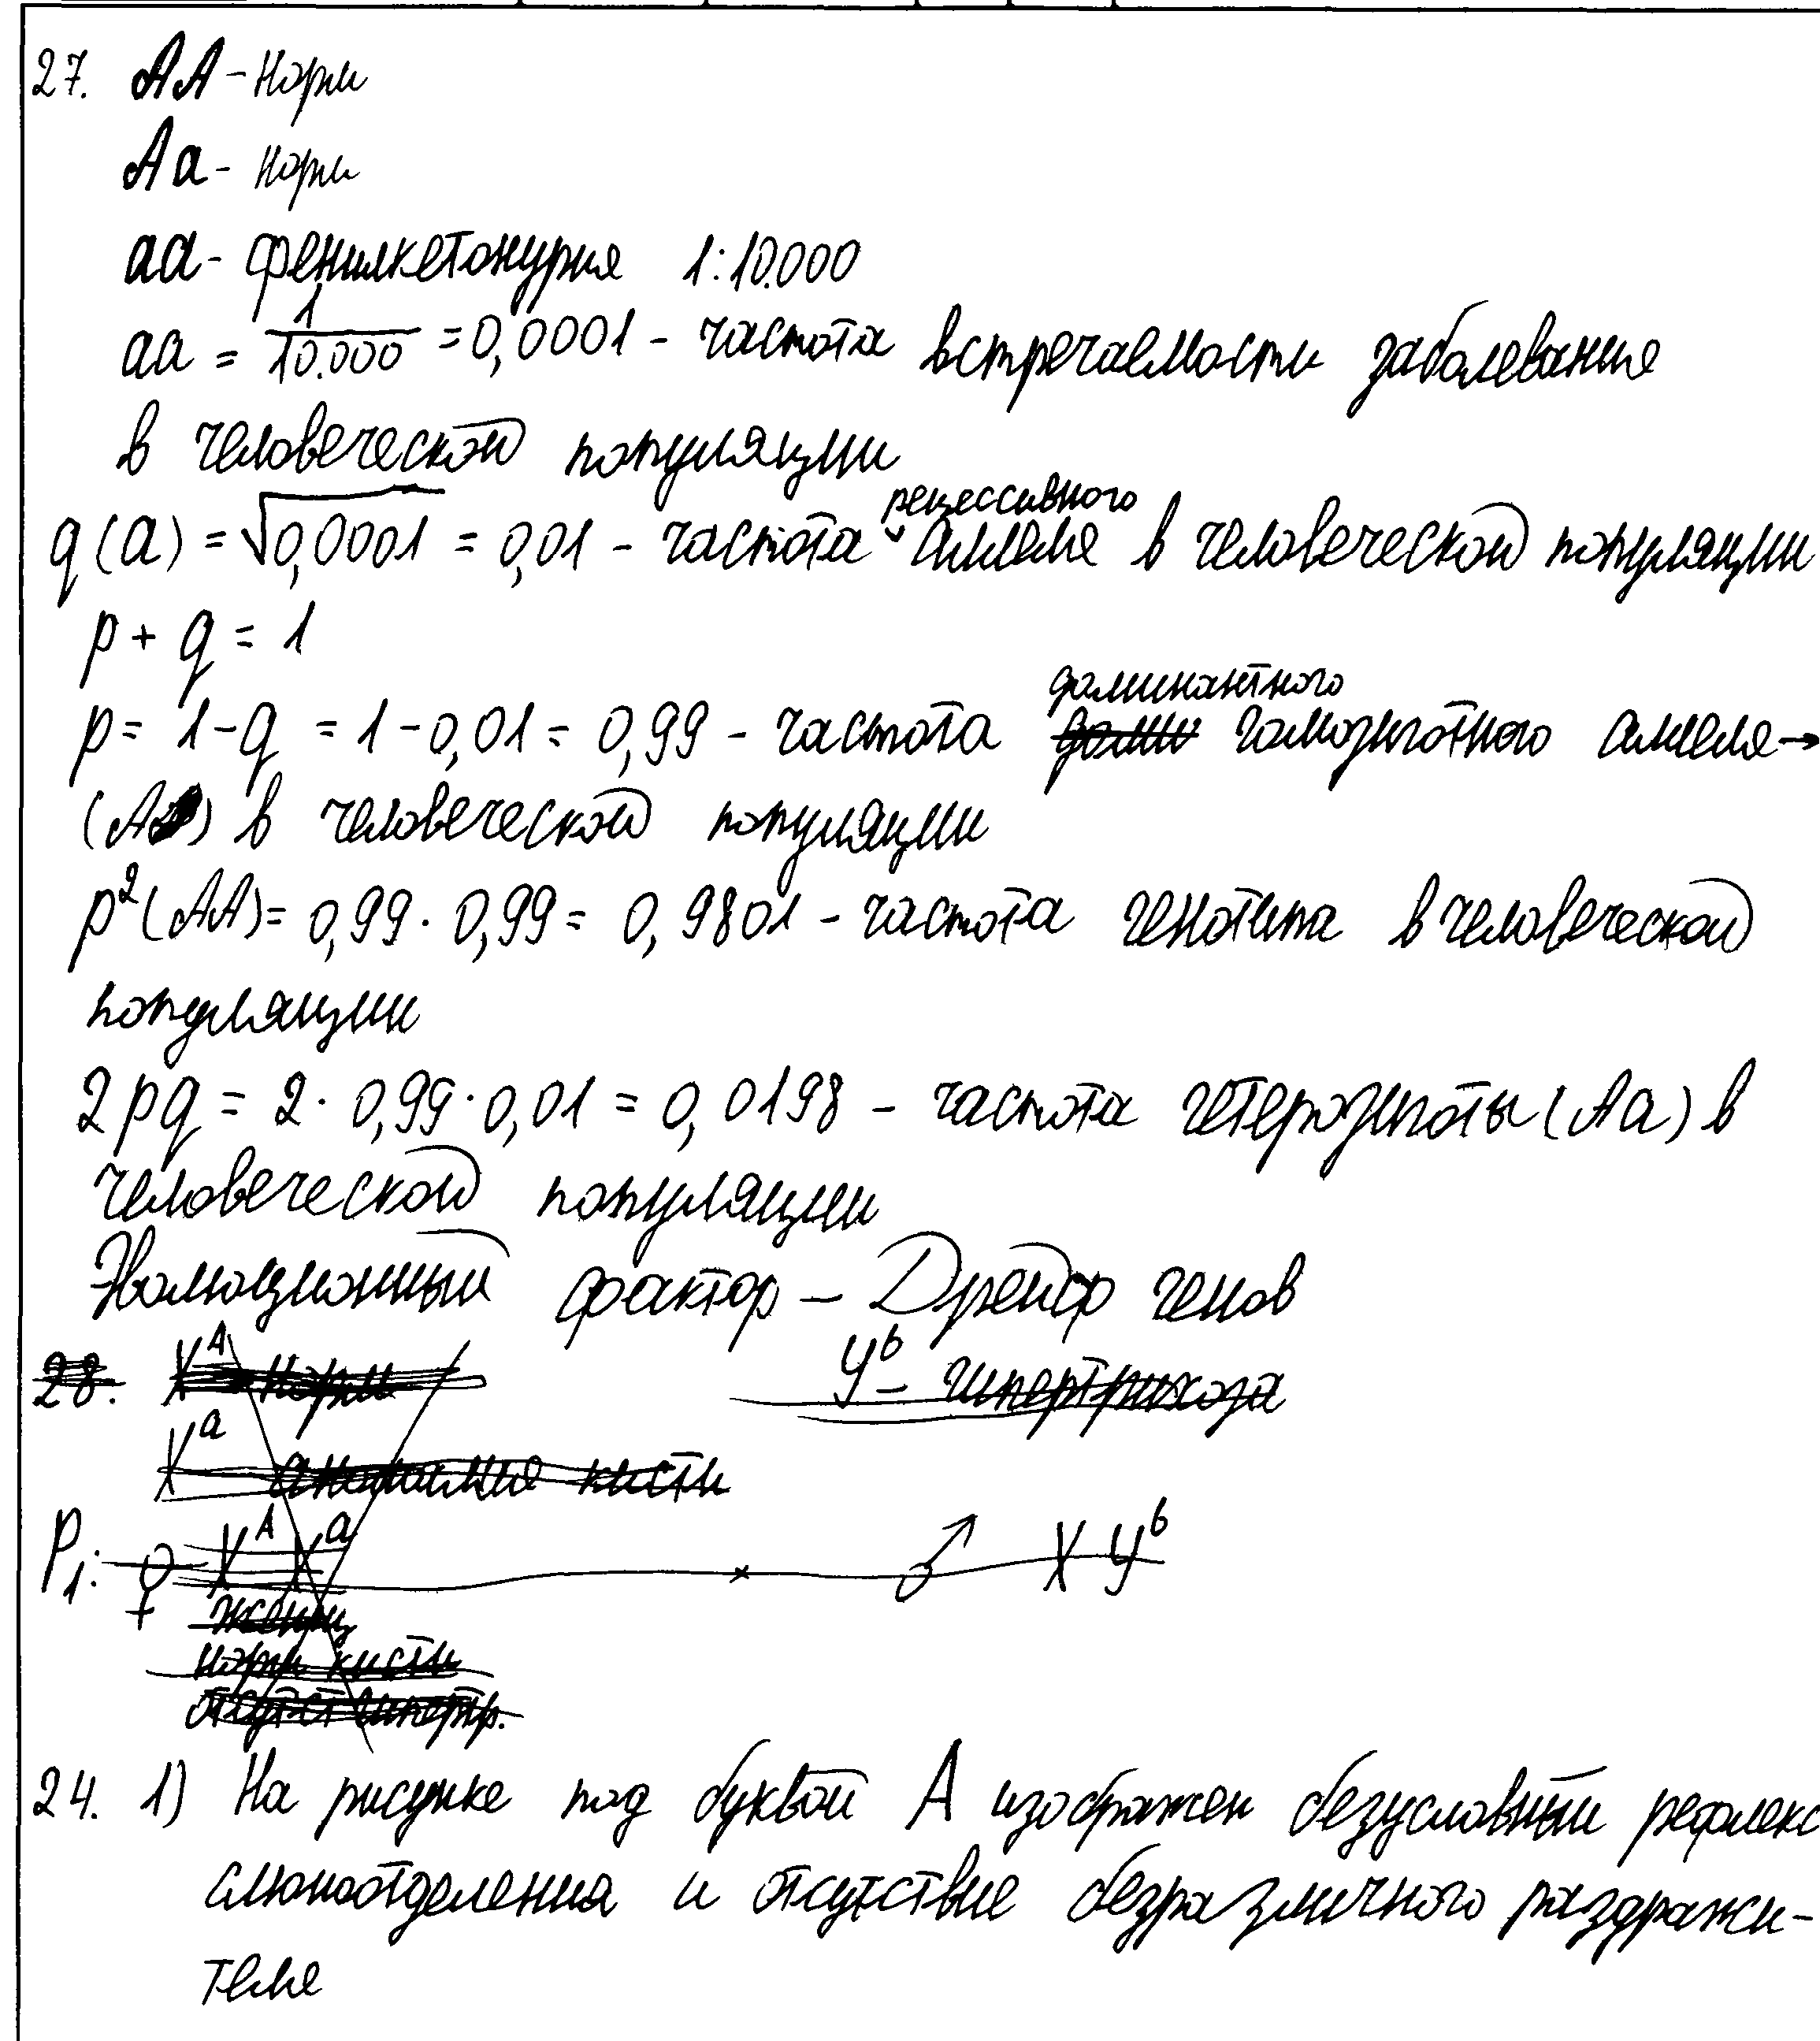 27. АА - норм
Аа - норм
аа - фенилкетонурия 1:10.000
аа = 1/10.000 = 0,0001 - частота встречаемости заболевание
в человеческой популяции
q(а) = √0,0001 = 0,01 - частота рецессивного аллеля в человеческой популяции
p + q = 1
p = 1-q = 1-0,01 = 0,99 - частота доминантного гомозиготного аллеля→
(А) в человеческой популяции
p²(АА) = 0,99 · 0,99 = 0,9801 - частота генотипа в человеческой
популяции
2pq = 2 · 0,99 · 0,01 = 0,0198 - частота гетерозиготы (Аа) в
человеческой популяции
Эволюционный фактор – Дрейф генов
28. Xᴬ - норм Yᵇ - гипертрихоза
Xᵃ аномалия кисти
P₁: ♀ Xᴬ Xᵃ × ♂ X Yᵇ
женщ
норм кисти
отсутст гипертр.
24. 1) На рисунке под буквой А изображен безусловный рефлекс
слюноотделения и отсутствие безразличного раздражи-
теля